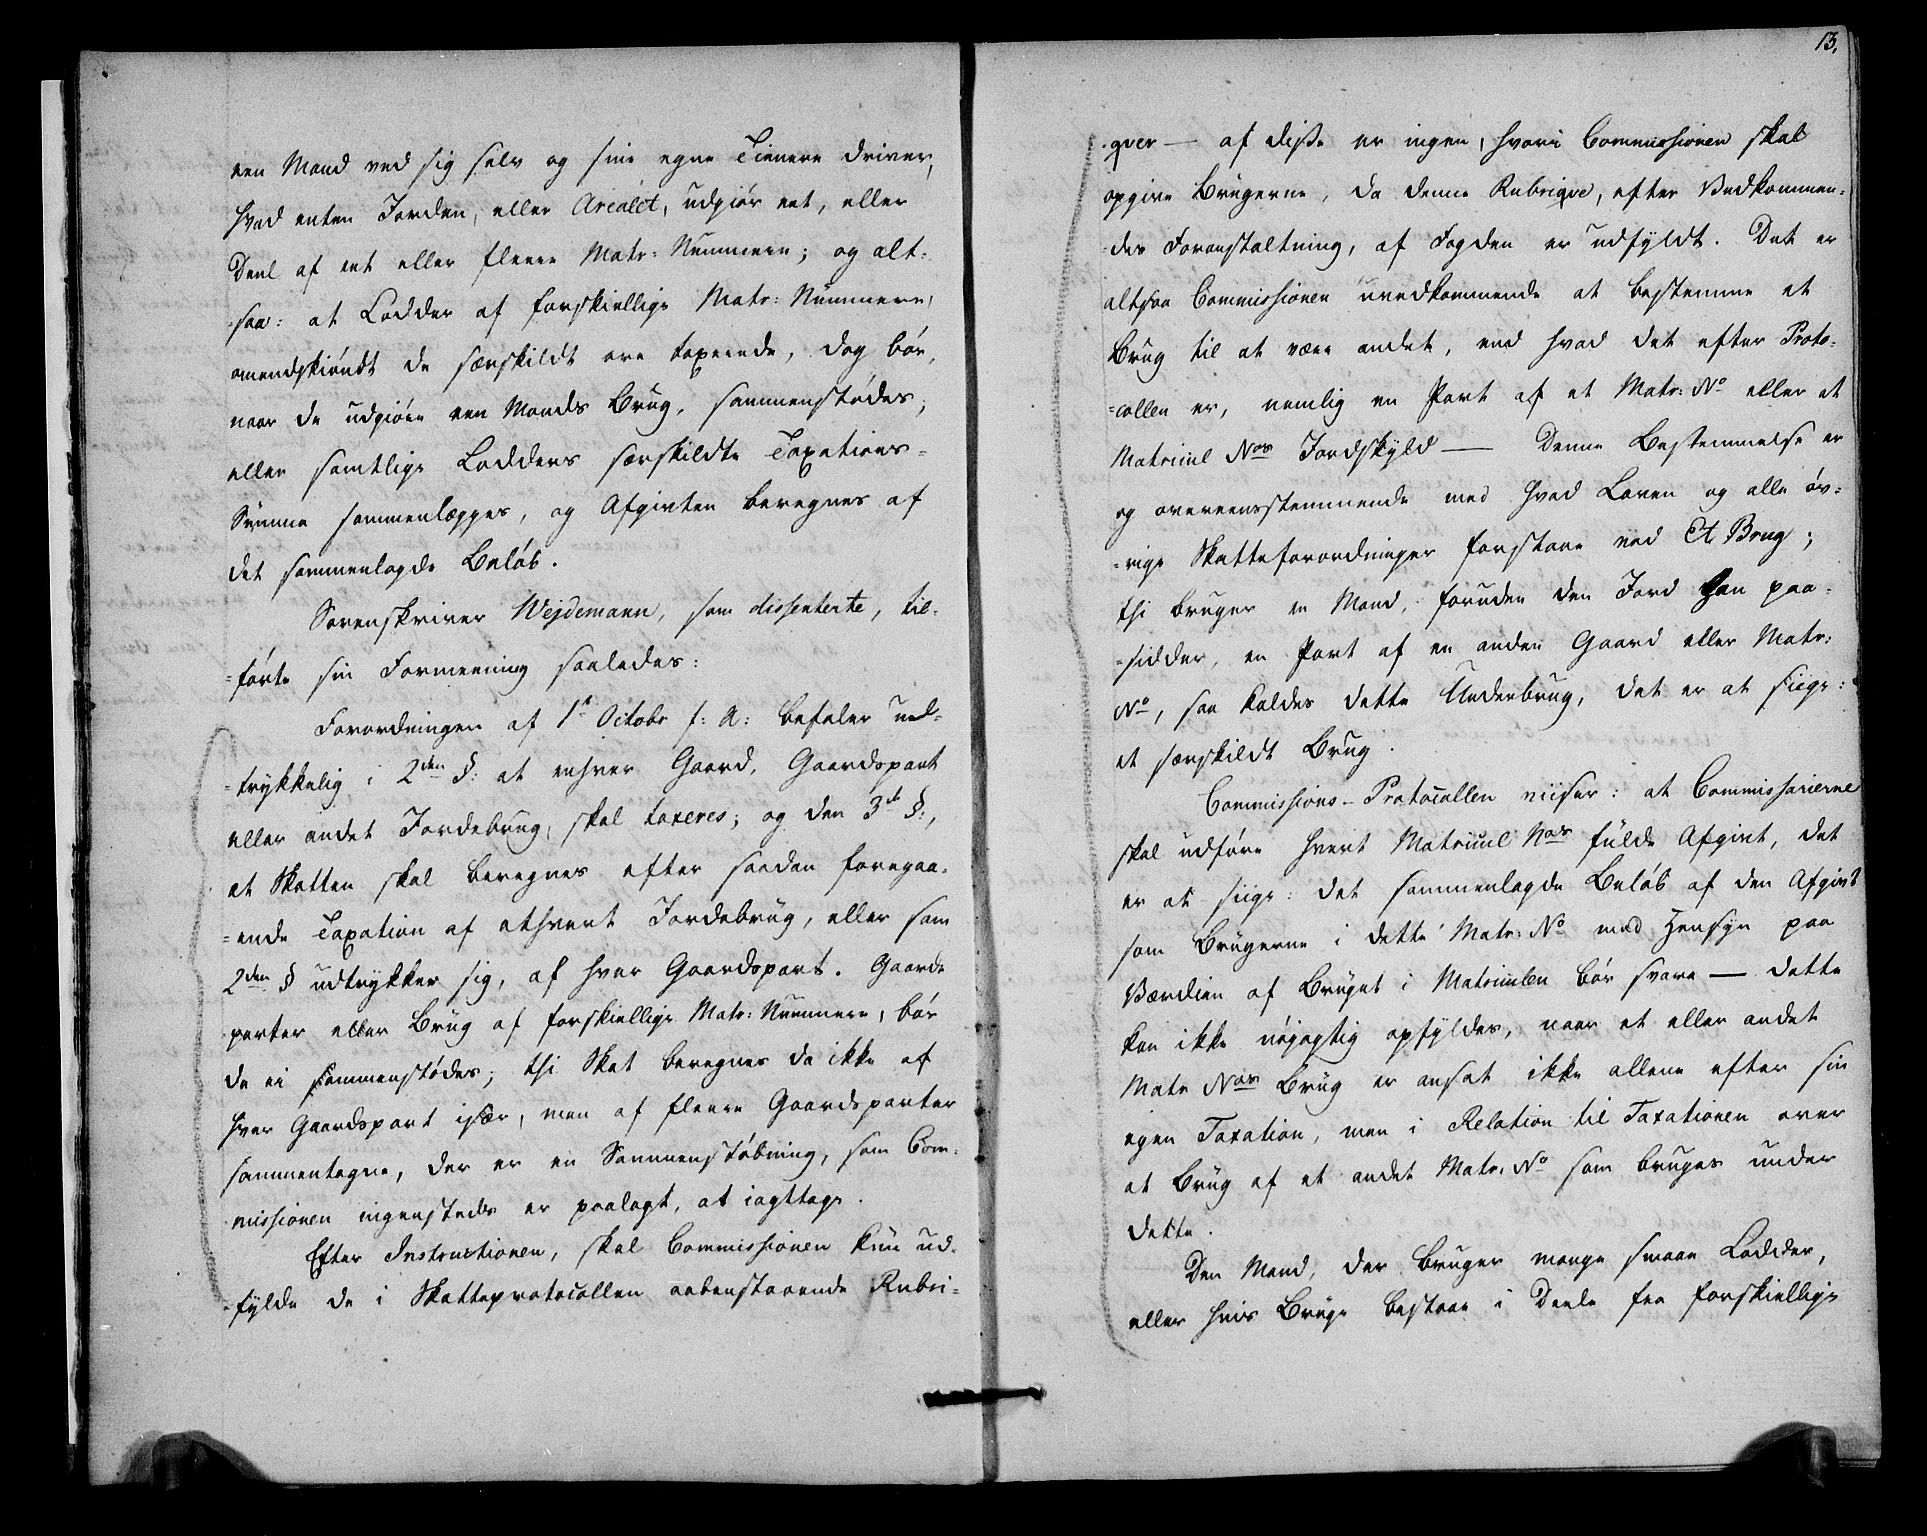 een Mand ved sig selv og sine egne Tienere driver,
hvad enten Jorden, eller Arealet, udgiør eet, eller
Deel af eet eller fleere Matr: Nummere; og alt-
-saa: at Lodder af forskiellige Matr: Nummere,
omendskiøndt de særskildt ere taxerede, dog bør,
naar de udgiøre een Mands Brug, sammenstødes,
eller samtlige Lodders særskildte Taxations-
Summa sammenlægges, og Afgivten beregnes af
det sammenlagde Beløb.
Sorenskriver Wejdemann, som dissenterte, til-
-førte sin Formeening saaledes:
Forordningen af 1ste Octobr f: A: befaler ud-
-trykkelig i 2den §: at enhver Gaard, Gaardspart
eller andet Jordebrug, skal taxeres; og den 3de §:,
at Skatten skal beregnes efter saadan foregaa-
-ende Taxation af ethvert Jordebrug, eller som
2den § udtrykker sig, af hver Gaardspart. Gaards
parter eller Brug af forskiellige Matr: Nummere, bør
da ei sammenstødes; thi Skat beregnes da ikke af
hver Gaardspart især, men af fleere Gaardsparter
sammentagne, der er en Sammenstøbning, som Com-
missionen ingensteds er paalagt, at iagttage.
Efter Instructionen, skal Commissionen kun ud-
-fylde de i Skatteprotocollen aabenstaaende Rubri-
13.
qver — af disse er ingen, hvori Commissionen skal
opgive Brugerne, da denne Rubriqve, efter Vedkommen-
-des Foranstaltning, af Fogden er udfyldt. Det er
altsaa Commissionen uvedkommende at bestemme et
Brug til at være andet, end hvad det efter Proto-
-collen er, nemlig en Part af et Matr: No eller et
Matricul Nos Jordskyld — Denne Bestemmelse er
og overeensstemmende med hvad Loven og alle øv-
-rige Skatteforordninger forstaae ved Et Brug;
thi bruger en Mand, foruden den Jord han paa-
-sidder, en Part af en anden Gaard eller Matr:
No, saa kaldes dette Underbrug, det er at siige:
et særskildt Brug.
Commissions-Protocollen viiser: at Commissarierne
skal udføre hvert Matricul Nos fulde Afgivt, det
er at siige: det sammenlagde Beløb af den Afgivt
som Brugerne i dette Matr: No med Hensyn paa
Værdien af Bruget i Matriculen bør svare — dette
kan ikke nøjagtig opfyldes, naar et eller andet
Matr Nos Brug er ansat ikke allene efter sin
egen Taxation, men i Relation til Taxationen over
et Brug af et andet Matr: No som bruges under
dette.
Den Mand, der bruger mange smaae Lodder,
eller hvis Brug bestaae i Deele fra forskiellige